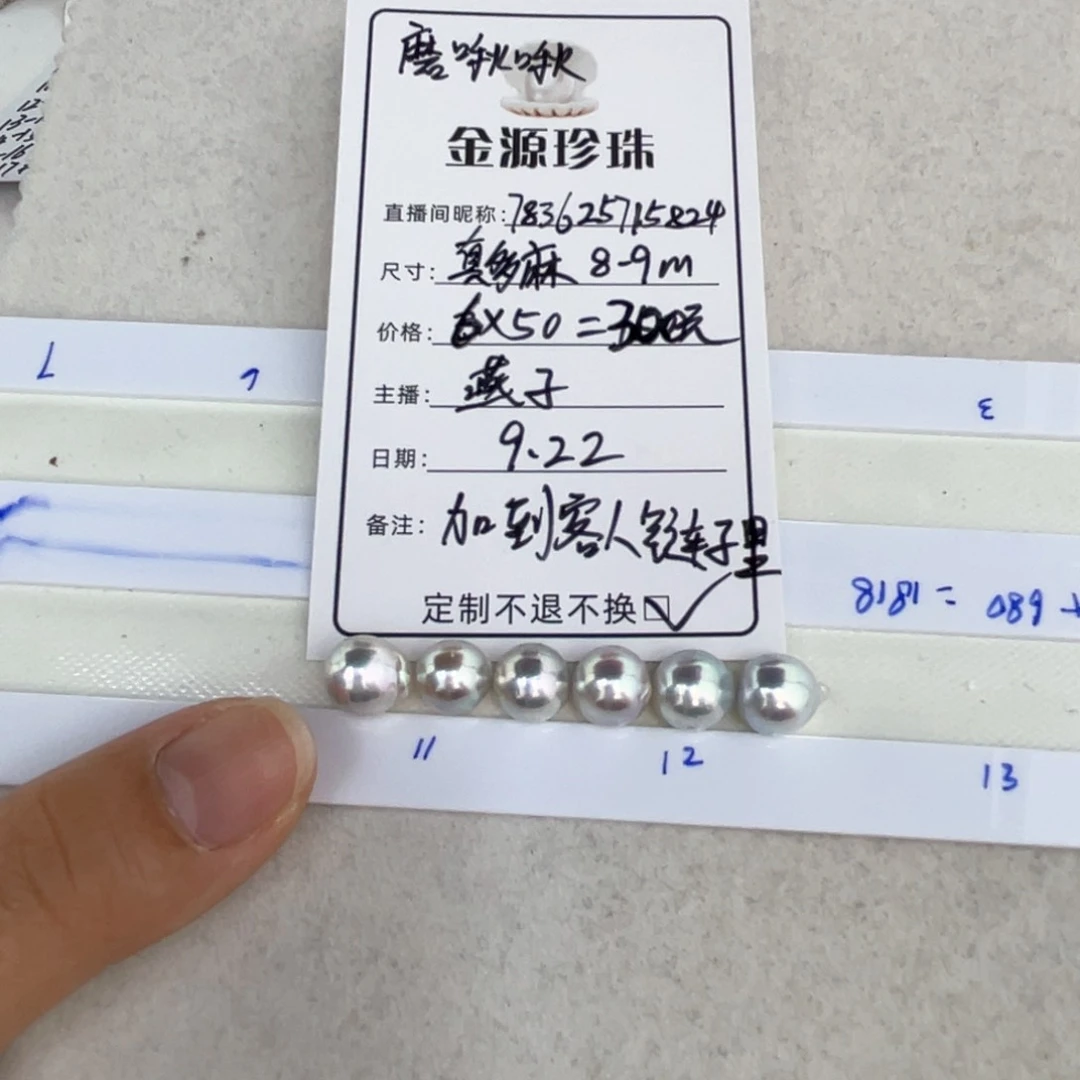 磨啾啾
金源珍珠
直播间昵称:783625715824
尺寸: 真多麻 8-9m
价格: 6×50=300元
主播: 燕子
日期: 9.22
备注: 加到客人链子里
定制不退不换☑
7
3
1818 = 680 +
11
12
13